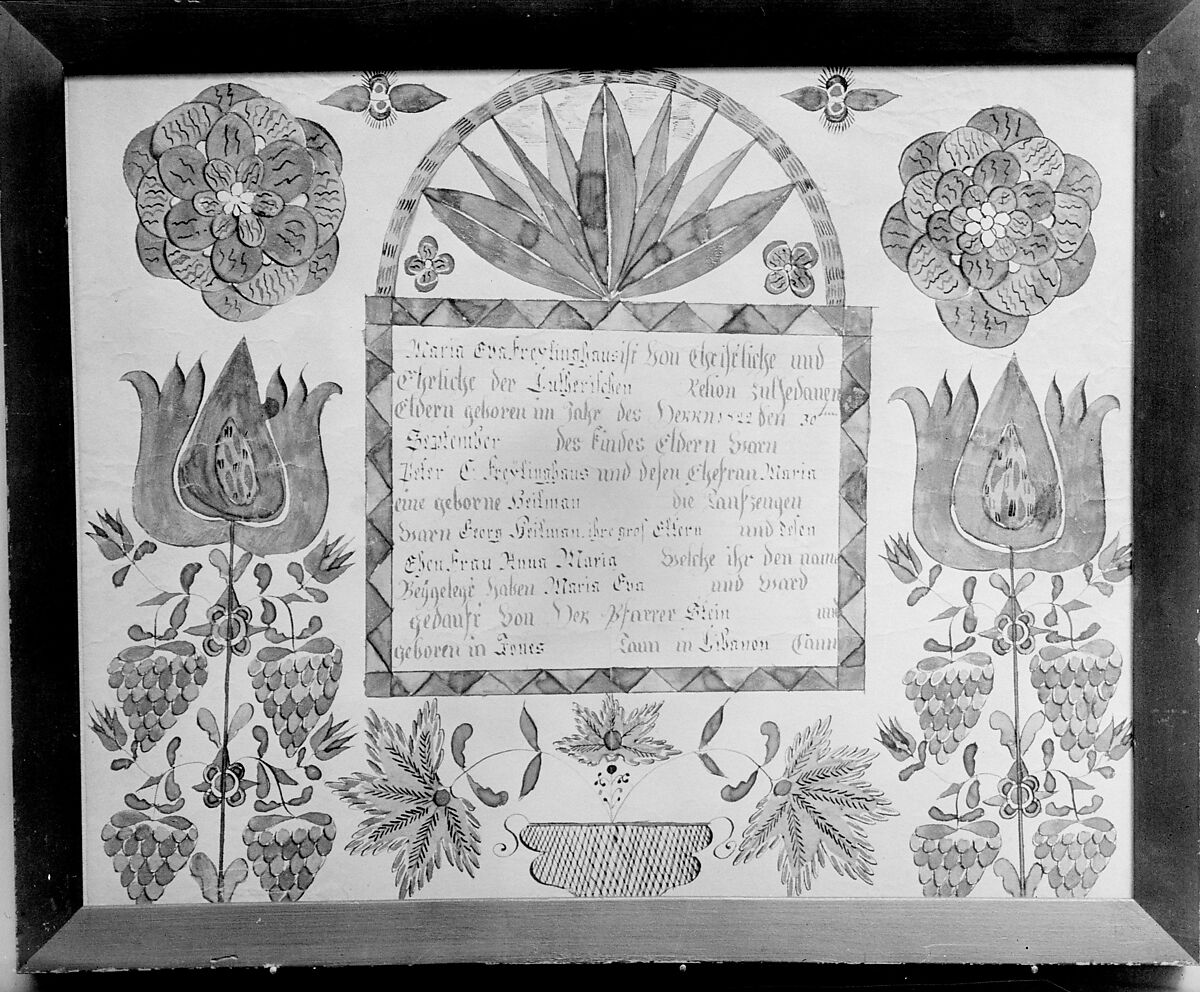 Maria Eva Freylinghaus ist Von Christliche und
Ehrliche der Lutherischen Relion zu gedanen
Eldern geboren im Jahr des Herrn 1822 den 30ten
September des kindes Eldern Warn
Peter C. Freylinghaus und desen Ehefrau Maria
eine geborne Heilman die Taufzeugen
Warn Georg Heilman ihre gros Eltern und desen
Ehen Frau Anna Maria Welche ihr den name
Beygelegt haben Maria Eva und Ward
gedauft Von Der Pfarrer Stein und
geboren in Taun in Libanon Caun